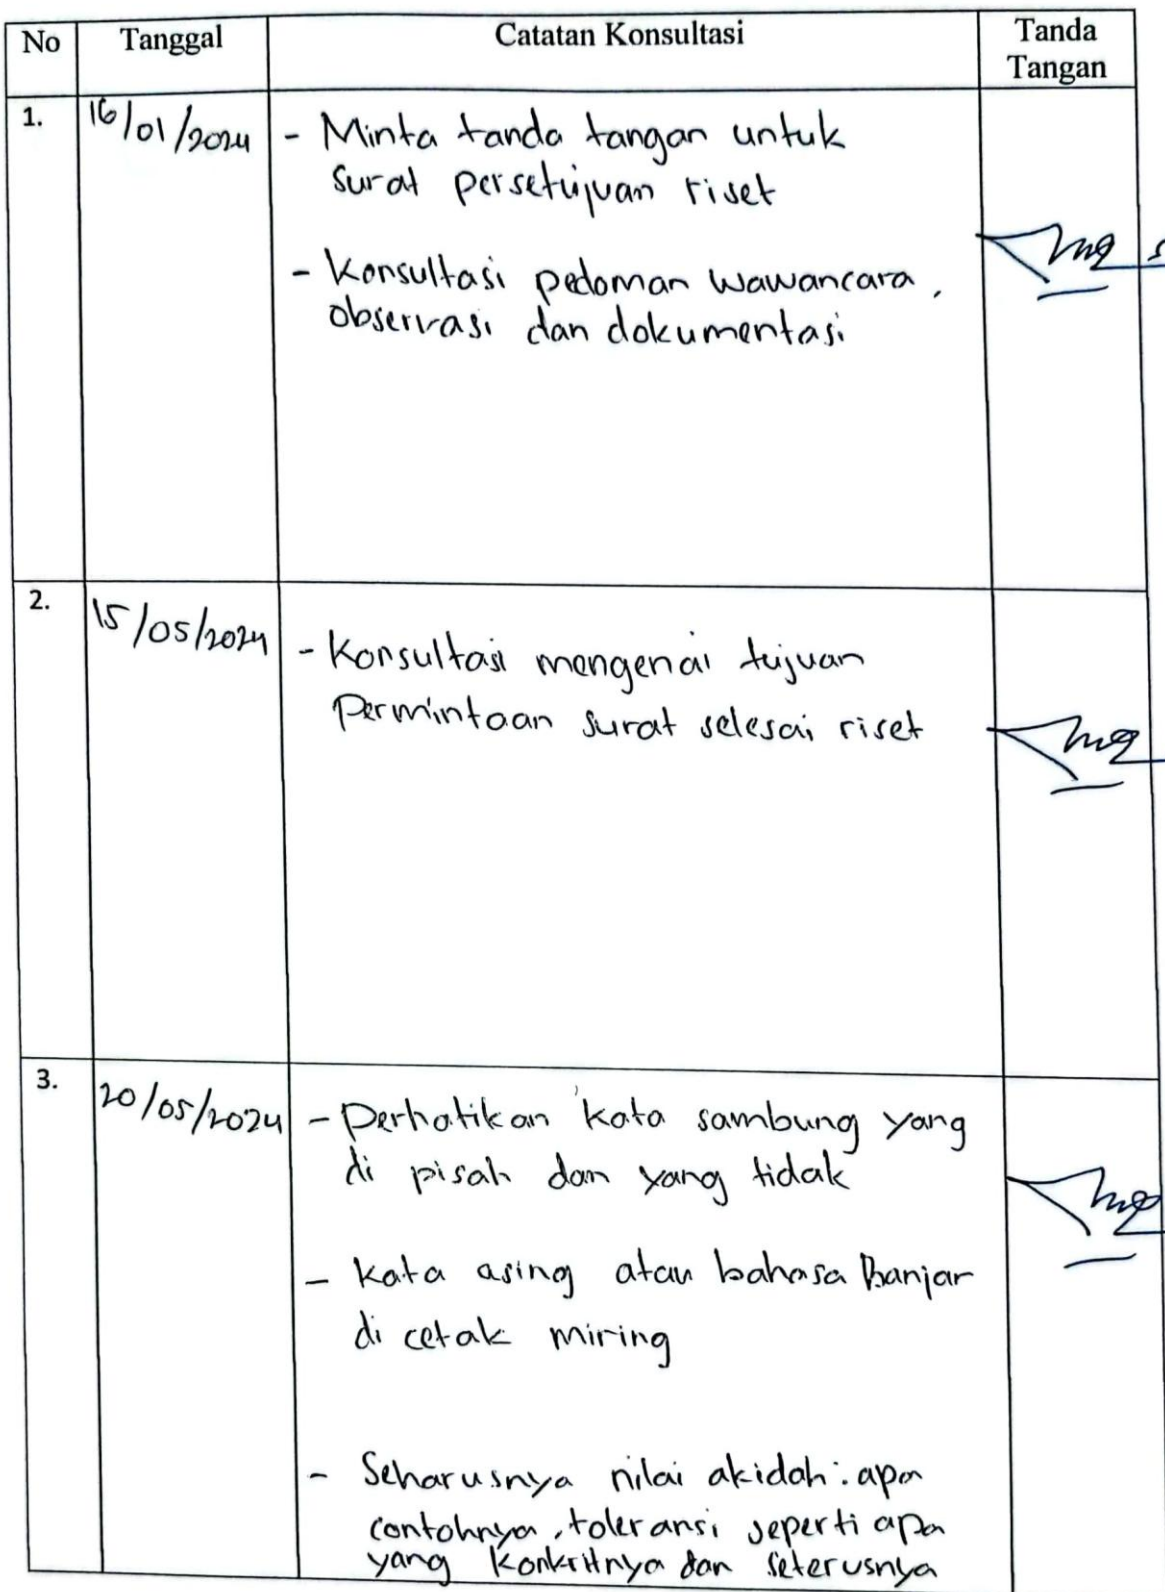 No Tanggal Catatan Konsultasi Tanda
Tangan
1. 16/01/2024 - Minta tanda tangan untuk
surat persetujuan riset
- Konsultasi pedoman wawancara,
observasi dan dokumentasi
2. 15/05/2024 - Konsultasi mengenai tujuan
Permintaan surat selesai riset
3. 20/05/2024 - Perhatikan kata sambung yang
di pisah dan yang tidak
- Kata asing atau bahasa Banjar
di cetak miring
- Seharusnya nilai akidah: apa
contohnya, toleransi seperti apa
yang konkritnya dan seterusnya